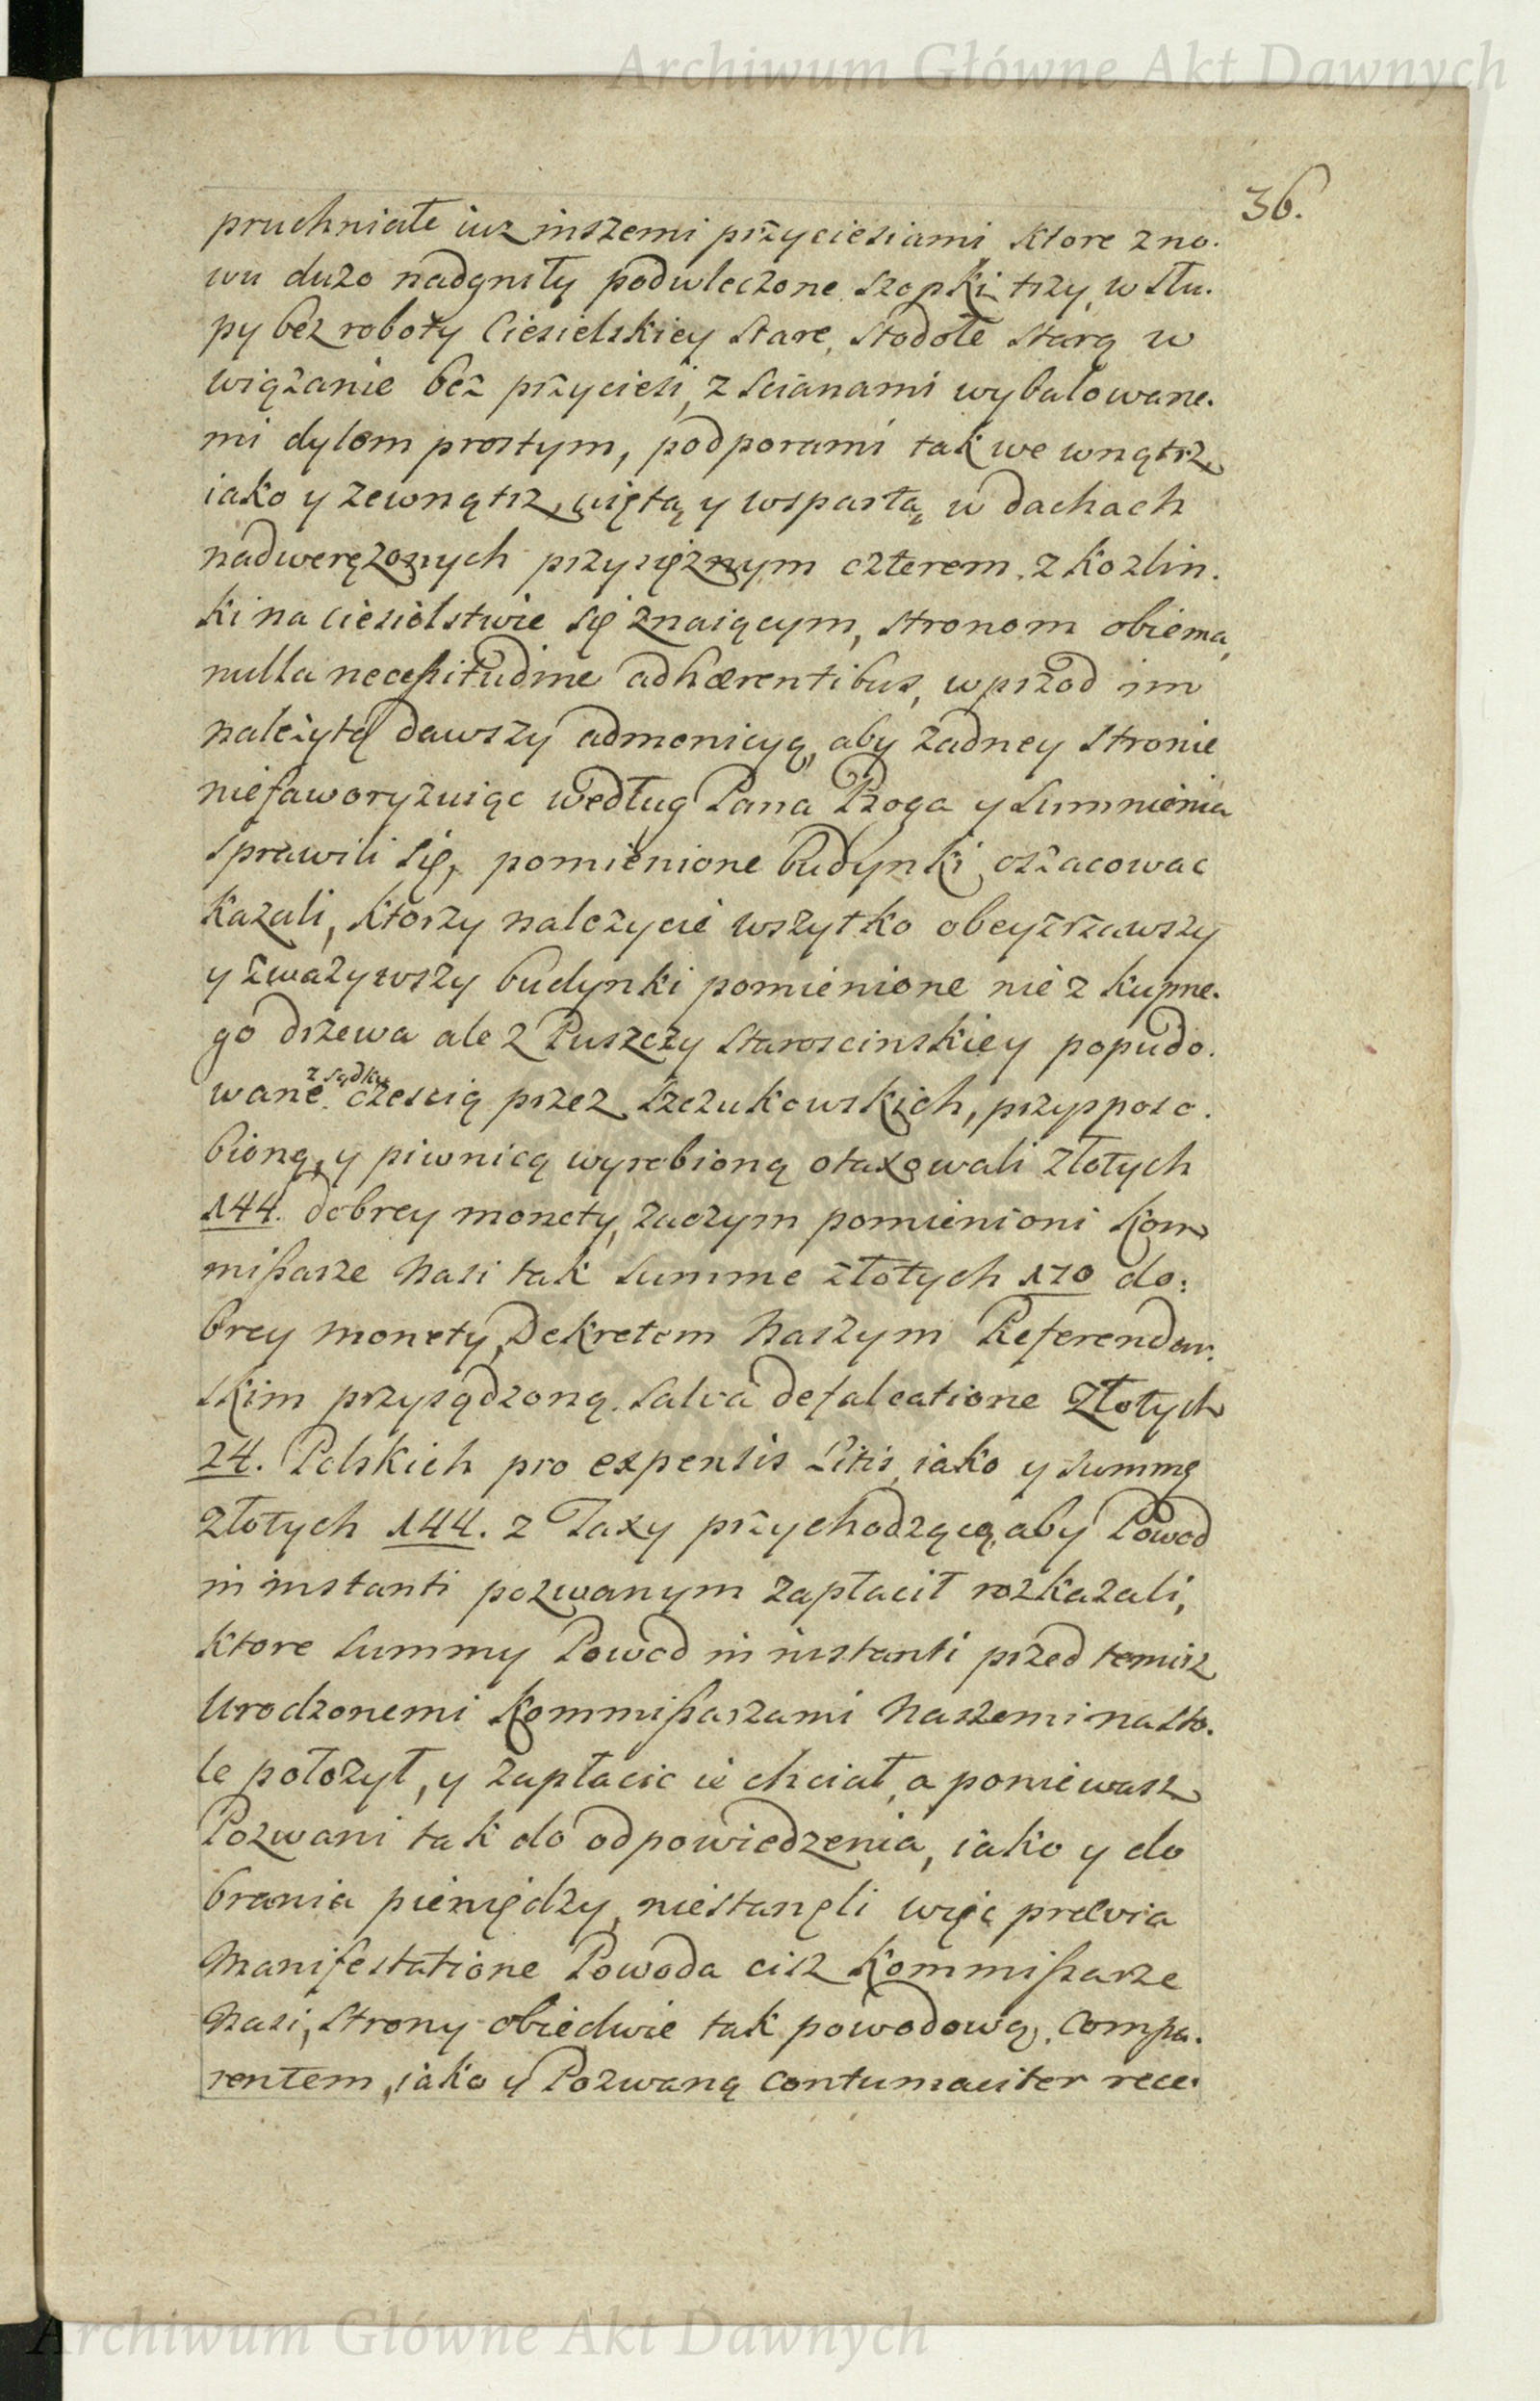 Archiwum Główne Akt Dawnych
36.
pruchniałe iuz inszemi przyciesiami ktore zno.
wu duzo nadgniły podwleczone szopki trzy w słu.
py bez roboty Ciesielskiey stare, stodołe starą w
wiązanie bez przyciesi, z scianami wybalowane.
mi dylem prostym, podporami tak we wnątrz
iako y zewnątrz, uiętą y wspartą w dachach
nadwerężonych przysiężnym czterem z Kozlin.
ki na ciesiolstwie się znaiącym, stronom obiema,
nulla necessitudine adhærentibus, wprzod im
należytą dawszy admonicyą, aby żadney stronie
niefaworyzuiąc według Pana Boga y sumnienia
sprawili się, pomienione budynki oszacowac
kazali, ktorzy należycie wszytko obeyzrzawszy
y zwazywszy budynki pomienione nie z kupne.
go drzewa ale z Puszczy Staroscinskiey popudo.
z sądku
wane. czescią przez Szczukowskich, przysposo.
bioną, y piwnicą wyrobioną otaxowali złotych
144. dobrey monety, zaczym pomienioni Kom
missarze Nasi tak summe złotych 170 do:
brey monety, Dekretem Naszym Referendar.
skim przysądzoną. salva defalcatione Złotych
24. Polskich pro expensis Litis, iako y summę
złotych 144. z Taxy przychodzącą, aby Powod
in instanti pozwanym zapłacił rozkazali,
ktore summy Powod in instanti przed temisz
Urodzonemi Kommissarzami Naszemi na sto.
le położył, y zapłacic ie chciał, a poniewasz
Pozwani tak do odpowiedzenia, iako y do
brania pieniędzy, niestanęli więc prævia
Manifestatione Powoda cisz Kommissarze
Nasi, strony obiedwie tak powodową, Compa.
rentem, iako y Pozwaną contumaciter rece.
Archiwum Główne Akt Dawnych